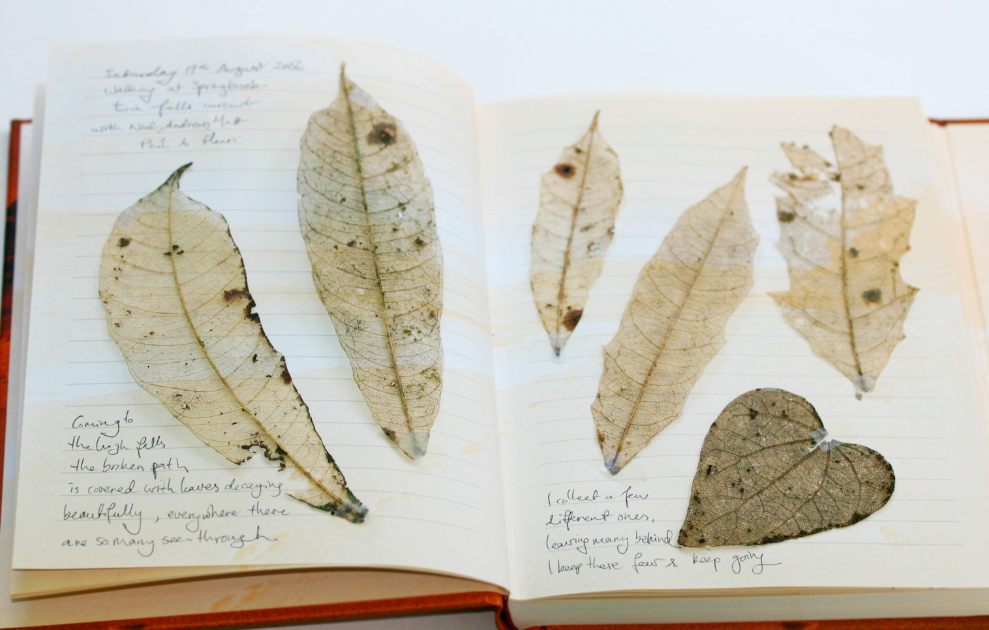 Saturday 19th August 2006
Walking at Springbrook
twin falls circuit
with Noel, Andrew, Matt
Phil &
Coming to
the high falls
the broken path
is covered with leaves decaying
beautifully, everywhere there
are so many see through
I collect a few
different ones,
leaving many behind
I keep these few & keep going